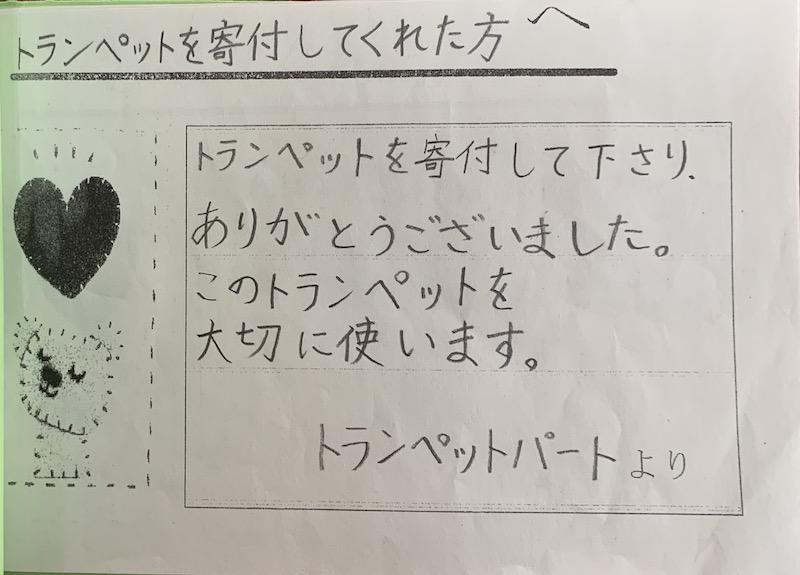 トランペットを寄付してくれた方へ
トランペットを寄付して下さり、
ありがとうございました。
このトランペットを
大切に使います。
トランペットパートより